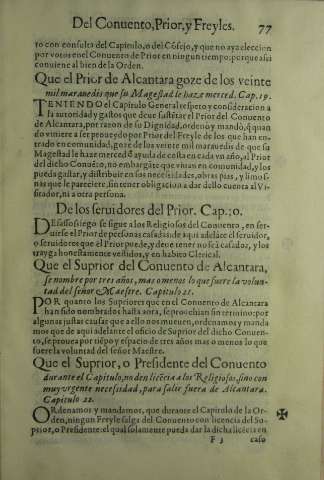 Del Conuento, Prior, y Freyles. 77
to con consulta del Capitulo, o del Cõsejo, y que no aya eleccion
por votos en el Conuento de Prior en ningun tiempo: porque assi
conuiene al bien de la Orden.
Que el Prior de Alcantara goze de los veinte
mil marauedis que su Magestad le haze merced. Cap. 19.
TENIENDO el Capitulo General respeto y consideracion a
la autoridad y gastos que deue sustẽtar el Prior del Conuento
de Alcantara, por razon de su Dignidad, ordenò y mandò, q quan
do viniere a ser proueydo por Prior del Freyle de los que han en-
trado en comunidad, goze de los veinte mil marauedis de que su
Magestad le haze merced d ayuda de costa en cada vn año, al Prior
del dicho Conuẽto, no embargãte que viuan en comunidad, y los
pueda gastar, y distribuir en sus necessidades, obras pias, y limos-
nas que le pareciere, sin tener obligacion a dar dello cuenta al Vi-
sitador, ni a otra persona.
De los seruidores del Prior. Cap. 20.
DEsassossiego se sigue a los Religiosos del Conuento, en ser-
uirse el Prior de personas casadas: de aqui adelãte el seruidor,
o seruidores que el Prior puede, y deue tener no seã casados, y los
trayga honestamente vestidos, y en habito Clerical.
Que el Suprior del Conuento de Alcantara,
se nombre por tres años, mas o menos lo que fuere la volun-
tad del señor Maestre. Capitulo 21.
POR quanto los Supriores que en el Conuento de Alcantara
han sido nombrados hasta aora, se prouehian sin termino: por
algunas justas causas que a ello nos mueuen, ordenamos y manda
mos que de aqui adelante el oficio de Suprior del dicho Conuen-
to, se prouea por tiẽpo y espacio de tres años mas o menos lo que
fuere la voluntad del señor Maestre.
Que el Suprior, o Presidente del Conuento
durante el Capitulo, no den licẽcia a los Religiosos, sino con
muy vrgente necessidad, para salir fuera de Alcantara.
Capitulo 22.
ORdenamos y mandamos, que durante el Capitulo de la Or-
den, ningun Freyle salga del Conuento con licencia del Su-
prior, o Presidente: el qual solamente pueda dar la dicha licẽcia en
F 3 caso